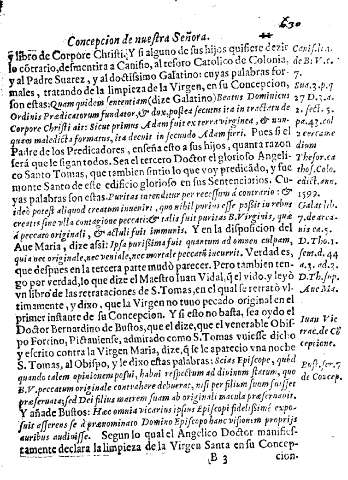 Concepcion de nuestra Señora.
y libro de Corpore Christi. Y si alguno de sus hijos quisiere dezir
lo cõtrario, desmentira a Canisio, al tesoro Catolico de Colonia,
y al Padre Suarez, y al doctissimo Galatino: cuyas palabras for-
males, tratando de la limpieza de la Virgen, en su Concepcion,
son estas: Quam quidem sententiam (dize Galatino) Beatus Dominicus
Ordinis Prædicatorum fundator, & dux, postea secutus ita in tractatu de
Corpore Christi ait: Sicut primus Adam fuit ex terra virginea, & nun-
quam maledicta formatus, ita decuit in secundo Adam fieri. Pues si el
Padre de los Predicadores, enseña esto a sus hijos, quanta razon
serà que le sigan todos. Sea el tercero Doctor el glorioso Angeli-
co Santo Tomas, que tambien sintio lo que voy predicando, y fue
monte Santo de este edificio glorioso en sus Sentenciarios. Cu-
yas palabras son estas. Puritas intenditur per recessum à contrario: &
ideò potest aliquod creatum inueniri, quo nihil purius esse possit in rebus
creatis, si nulla contagione peccati: & talis fuit puritas B. Virginis, quæ
à peccato originali, & actuali fuit immunis. Y en la disposicion del
Aue Maria, dize assi: Ipsa purissima fuit quantum ad omnem culpam,
quia nec originale, nec veniale, nec mortale peccatũ incurrit. Verdad es,
que despues en la tercera parte mudò parecer. Pero tambien ten-
go por verdad, lo que dize el Maestro Iuan Vidal, q̃ el vido, y leyò
vn libro de las retrataciones de S. Tomas, en el qual se retratò vl-
timamente, y dixo, que la Virgen no tuuo pecado original en el
primer instante de su Concepcion. Y si esto no basta, sea oydo el
Doctor Bernardino de Bustos, que el dize, que el venerable Obis-
po Forcino, Pictauiense, admirado como S. Tomas vuiesse dicho
y escrito contra la Virgen Maria, dize, q̃ se le aparecio vna noche
S. Tomas, al Obispo, y le dixo estas palabras: Scias Episcope, quòd
quando talem opinionem posui, habui respectum ad diuinum statum, quo
B. V. peccatum originale contrahere debuerat, nisi per filium suum fuisset
præseruata, sed Dei filius matrem suam ab originali macula præseruauit.
Y añade Bustos: Hæc omnia vicarius ipsius Episcopi fidelissimè expo-
suit asserens se à prænominato Domino Episcopo hanc visionem proprijs
auribus audiuisse. Segun lo qual el Angelico Doctor manifies-
tamente declara la limpieza de la Virgen Santa en su Concep-
B 3 cion.
Canis. l. 1.
de B. V. c.
7.
Sua. 3. p. q
27 D. 3. a.
2. sect. 5.
pa. 42. col
2 cercane
dium
Thesor. ca
thof. Colo.
edict. ann.
Galat. lib.
7. de arca-
nis ca. 5.
D. Tho. 1.
sent. d. 44
a. 3. ad. 2.
D. Th. sup.
Aue Ma.
1599.
Iuan Vic
trac. de Cõ
cepcione.
Bust. ser. 7
de Concep.